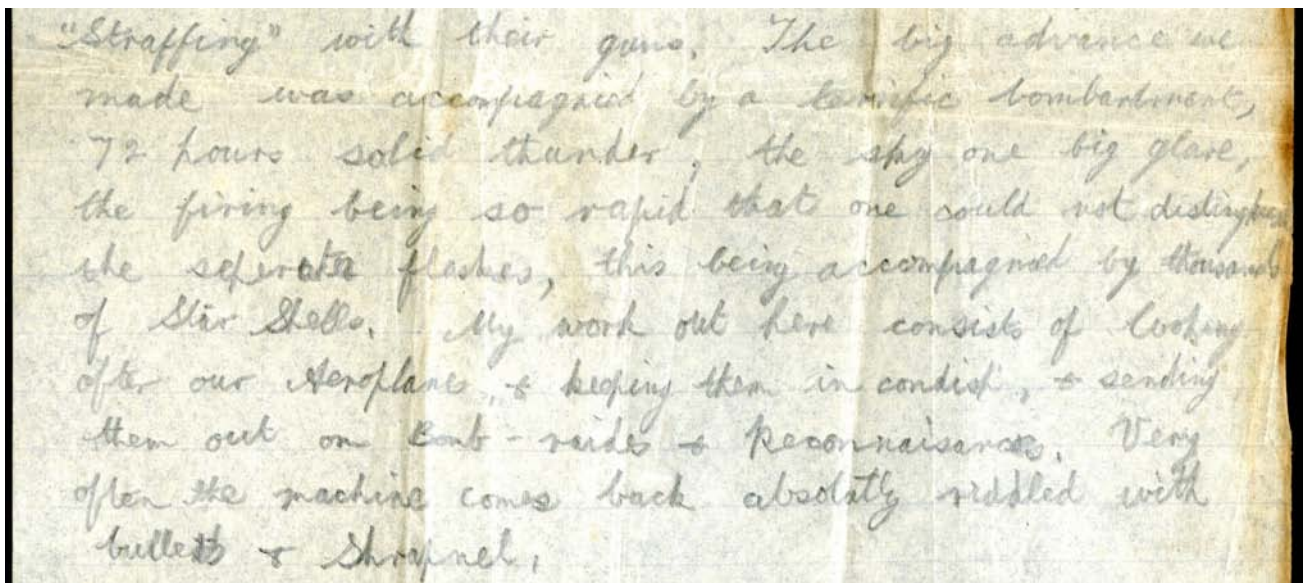 "Straffing" with their guns. The big advance we
made was accompagnied by a terrific bombardment,
72 hours solid thunder, the sky one big glare,
the firing being so rapid that one could not distinguish
the seperate flashes, this being accompagnied by thousands
of Star Shells. My work out here consists of looking
after our Aeroplanes, & keeping them in condist, & sending
them out on bomb-raids & Reconnaisances. Very
often the machine comes back absolutly riddled with
bullets & Shrapnel.